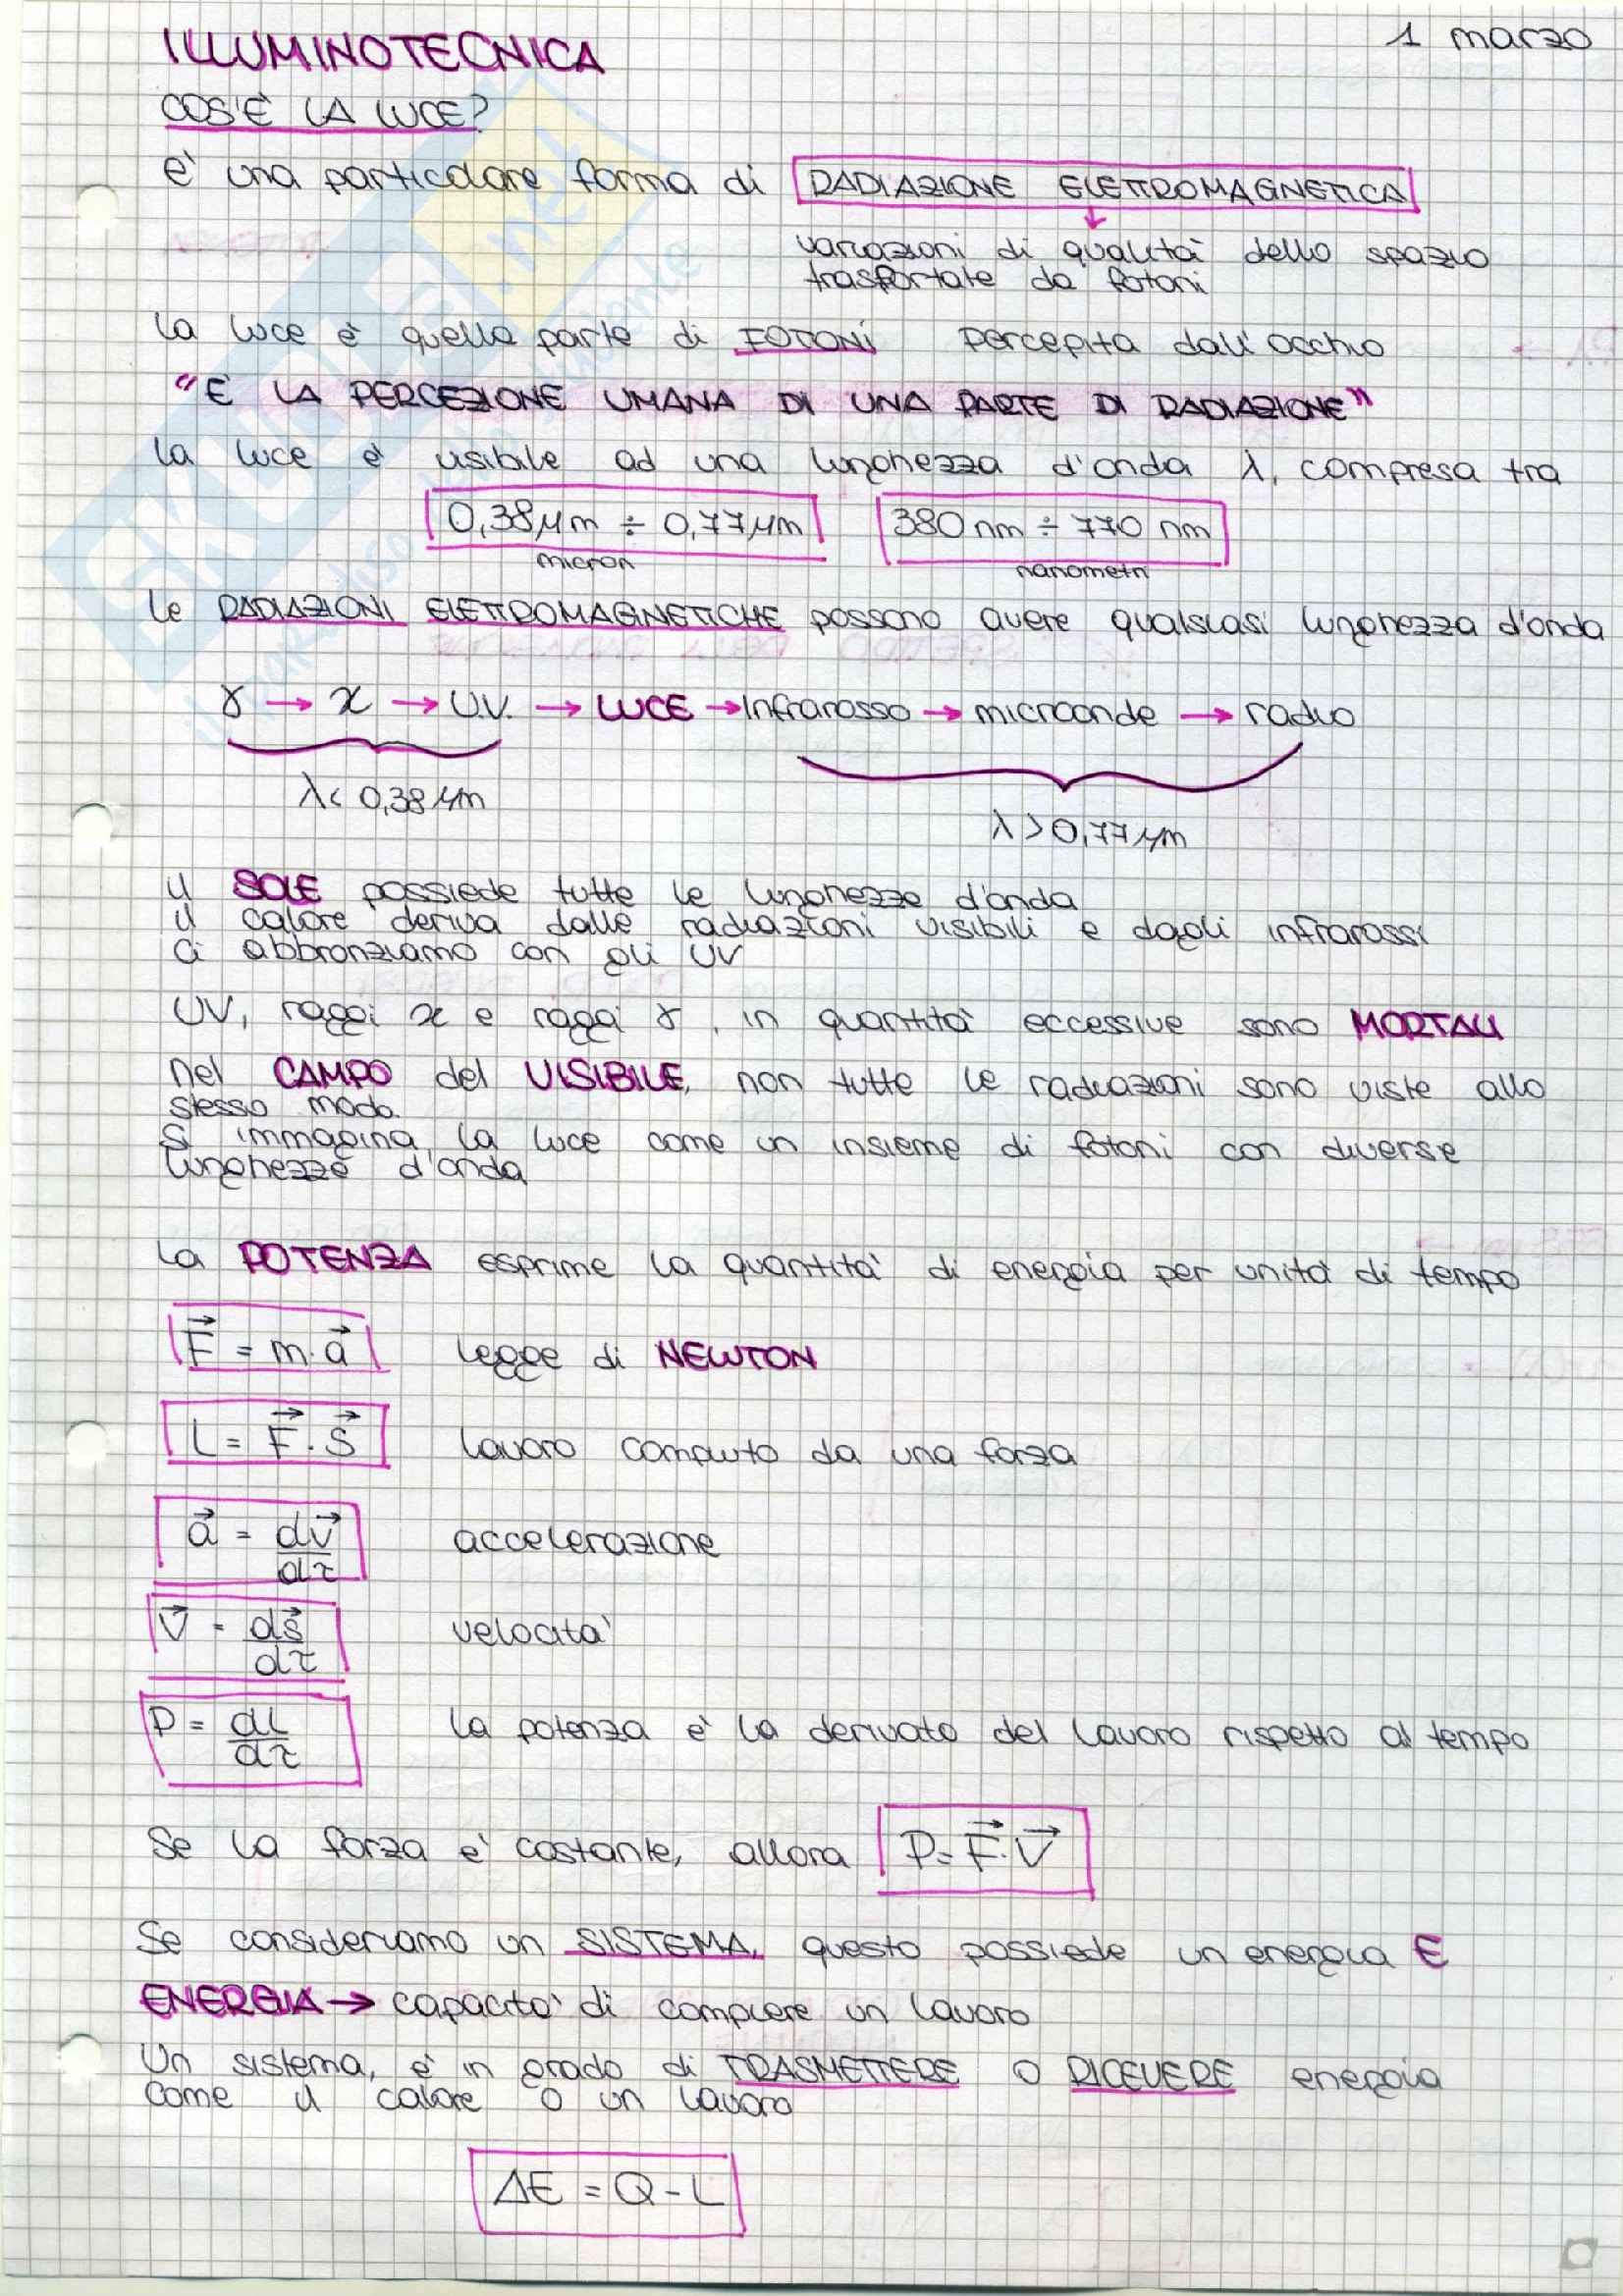 ILLUMINOTECNICA
1 marzo
COS'È LA LUCE?
È una particolare forma di RADIAZIONE ELETTROMAGNETICA
↓
variazioni di qualità dello spazio
trasportate da fotoni
La luce è quella parte di FOTONI percepita dall'occhio
"È LA PERCEZIONE UMANA DI UNA PARTE DI RADIAZIONE"
La luce è visibile ad una lunghezza d'onda λ, compresa tra
0,38 μm ÷ 0,77 μm 380 nm ÷ 770 nm
micron nanometri
Le RADIAZIONI ELETTROMAGNETICHE possono avere qualsiasi lunghezza d'onda
γ → x → U.V. → LUCE → Infrarosso → microonde → radio
λ < 0,38 μm
λ > 0,77 μm
Il SOLE possiede tutte le lunghezze d'onda
Il calore deriva dalle radiazioni visibili e dagli infrarossi
Ci abbronziamo con gli UV
UV, raggi x e raggi γ, in quantità eccessive sono MORTALI
Nel CAMPO del VISIBILE, non tutte le radiazioni sono viste allo
stesso modo.
Si immagina la luce come un insieme di fotoni con diverse
lunghezze d'onda
La POTENZA esprime la quantità di energia per unità di tempo
F⃗ = m · a⃗ legge di NEWTON
L = F⃗ · S⃗ lavoro compiuto da una forza
a⃗ = dv⃗/dτ accelerazione
v⃗ = ds⃗/dτ velocità
P = dL/dτ la potenza è la derivata del lavoro rispetto al tempo
Se la forza è costante, allora P = F⃗ · V⃗
Se consideriamo un SISTEMA, questo possiede un energia E
ENERGIA → capacità di compiere un lavoro
Un sistema, è in grado di TRASMETTERE o RICEVERE energia
come il calore o un lavoro
ΔE = Q - L